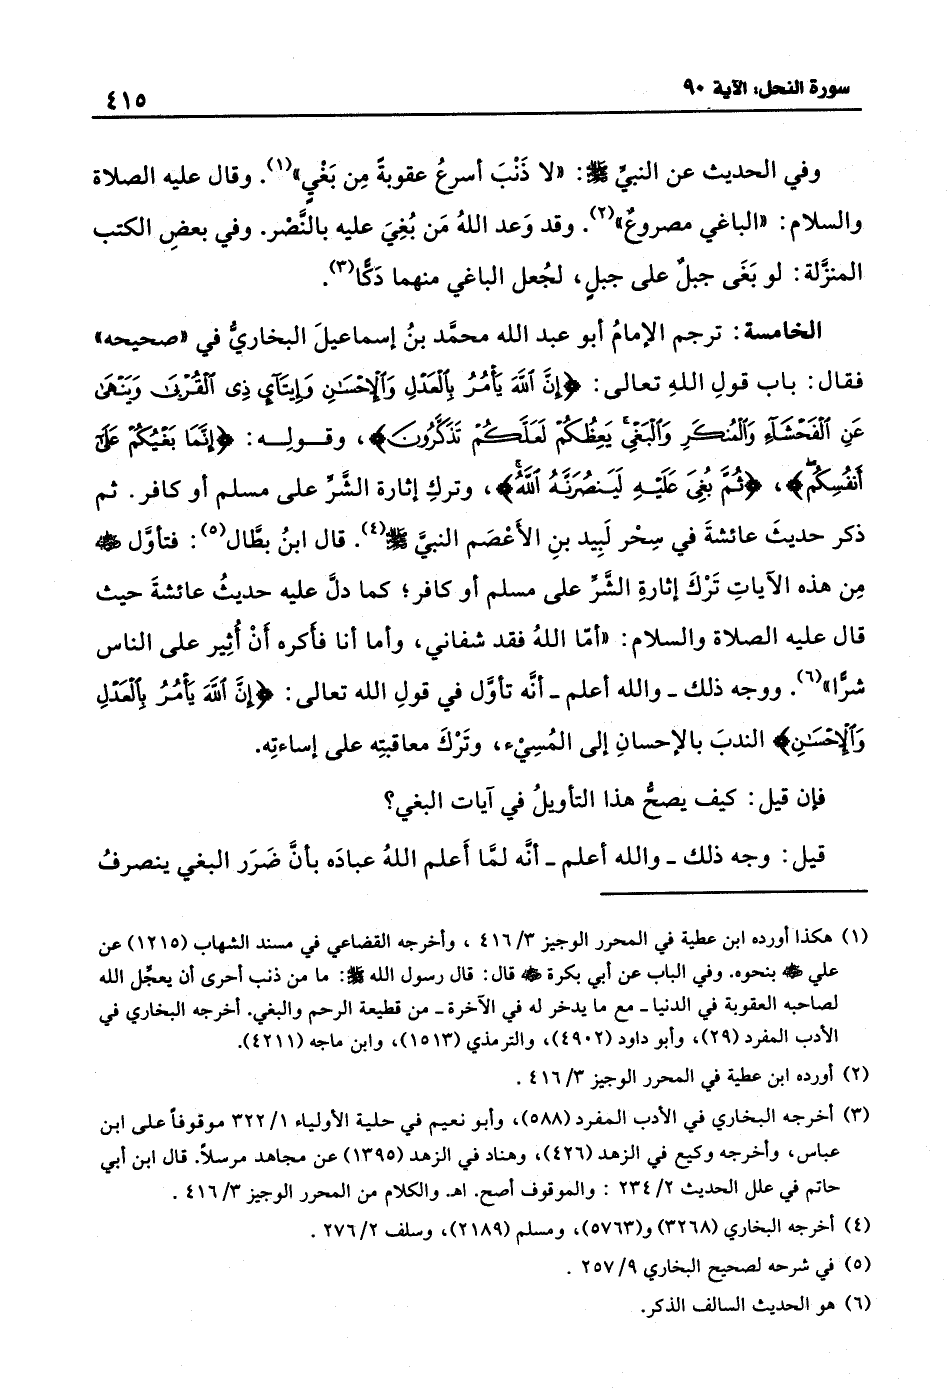 سورة النحل: الآية ٩٠
٤١٥
وفي الحديث عن النبيِّ ﷺ: «لا ذَنْبَ أسرعُ عقوبةً مِن بَغْيٍ»(١). وقال عليه الصلاة
والسلام: «الباغي مصروعٌ»(٢). وقد وَعد اللهُ مَن بُغِيَ عليه بالنَّصْر. وفي بعضِ الكتب
المنزَّلة: لو بَغَى جبلٌ على جبلٍ، لجُعل الباغي منهما دَكًّا(٣).
الخامسة: ترجم الإمامُ أبو عبد الله محمَّد بنُ إسماعيلَ البخاريُّ في «صحيحه»
فقال: باب قولِ اللهِ تعالى: ﴿إِنَّ ٱللَّهَ يَأْمُرُ بِٱلْعَدْلِ وَٱلْإِحْسَٰنِ وَإِيتَآئِ ذِى ٱلْقُرْبَىٰ وَيَنْهَىٰ
عَنِ ٱلْفَحْشَآءِ وَٱلْمُنكَرِ وَٱلْبَغْىِۚ يَعِظُكُمْ لَعَلَّكُمْ تَذَكَّرُونَ﴾، وقوله: ﴿إِنَّمَا بَغْيُكُمْ عَلَىٰٓ
أَنفُسِكُمۖ﴾، ﴿ثُمَّ بُغِىَ عَلَيْهِ لَيَنصُرَنَّهُ ٱللَّهُۚ﴾، وتركِ إثارة الشَّرِّ على مسلم أو كافر. ثم
ذكر حديثَ عائشةَ في سِحْر لَبِيد بنِ الأَعْصَم النبيَّ ﷺ(٤). قال ابنُ بطَّال(٥): فتأوَّل ﷺ
مِن هذه الآياتِ تَرْكَ إثارةِ الشَّرِّ على مسلم أو كافر؛ كما دلَّ عليه حديثُ عائشةَ حيث
قال عليه الصلاة والسلام: «أمَّا اللهُ فقد شفاني، وأما أنا فأكره أَنْ أُثِير على الناس
شرًّا»(٦). ووجه ذلك ـ والله أعلم ـ أنَّه تأوَّل في قولِ الله تعالى: ﴿إِنَّ ٱللَّهَ يَأْمُرُ بِٱلْعَدْلِ
وَٱلْإِحْسَٰنِ﴾ الندبَ بالإحسانِ إلى المُسِيْء، وتَرْكَ معاقبتِه على إساءتِه.
فإن قيل: كيف يصحُّ هذا التأويلُ في آيات البغي؟
قيل: وجه ذلك ـ والله أعلم ـ أنَّه لمَّا أَعلم اللهُ عبادَه بأنَّ ضَرَر البغي ينصرفُ
(١) هكذا أورده ابن عطية في المحرر الوجيز ٣/ ٤١٦ ، وأخرجه القضاعي في مسند الشهاب (١٢١٥) عن
علي ﷺ بنحوه. وفي الباب عن أبي بكرة ﷺ قال: قال رسول الله ﷺ: ما من ذنب أحرى أن يعجِّل الله
لصاحبه العقوبة في الدنيا ـ مع ما يدخر له في الآخرة ـ من قطيعة الرحم والبغي. أخرجه البخاري في
الأدب المفرد (٢٩)، وأبو داود (٤٩٠٢)، والترمذي (١٥١٣)، وابن ماجه (٤٢١١).
(٢) أورده ابن عطية في المحرر الوجيز ٣/ ٤١٦ .
(٣) أخرجه البخاري في الأدب المفرد (٥٨٨)، وأبو نعيم في حلية الأولياء ١/ ٣٢٢ موقوفاً على ابن
عباس، وأخرجه وكيع في الزهد (٤٢٦)، وهناد في الزهد (١٣٩٥) عن مجاهد مرسلاً. قال ابن أبي
حاتم في علل الحديث ٢/ ٢٣٤ : والموقوف أصح. اهـ. والكلام من المحرر الوجيز ٣/ ٤١٦ .
(٤) أخرجه البخاري (٣٢٦٨) و(٥٧٦٣)، ومسلم (٢١٨٩)، وسلف ٢/ ٢٧٦ .
(٥) في شرحه لصحيح البخاري ٩/ ٢٥٧ .
(٦) هو الحديث السالف الذكر.